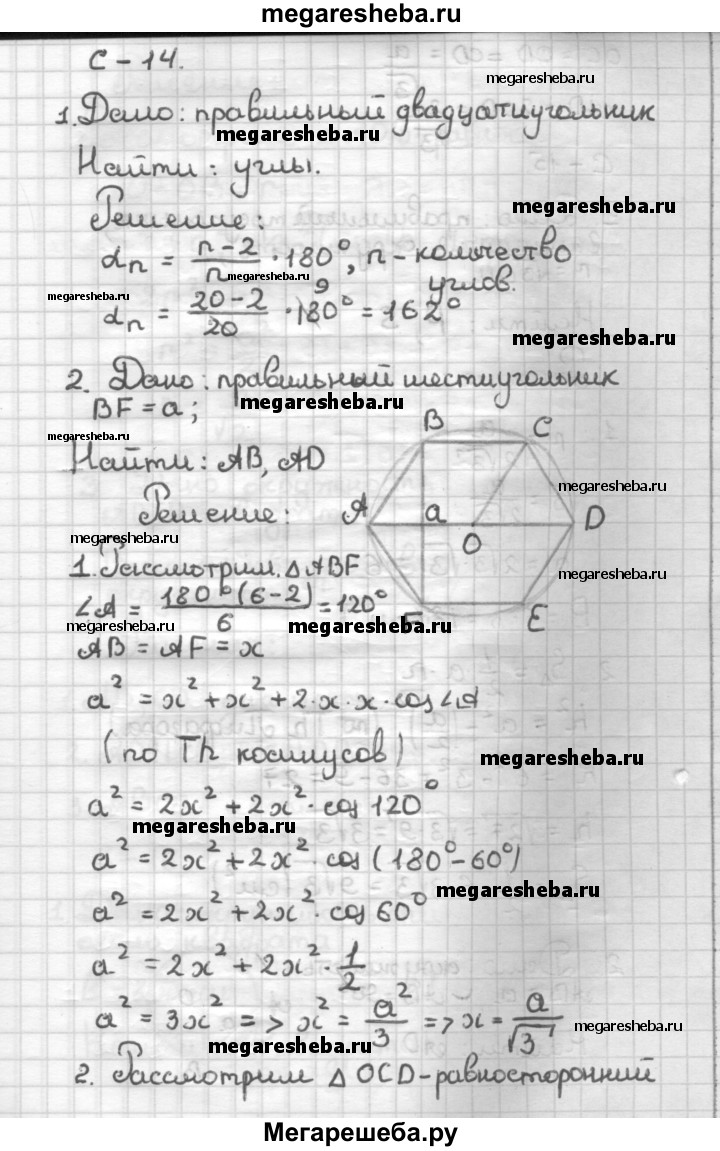 megaresheba.ru
С-14.
megaresheba.ru
1. Дано: правильный двадцатиугольник
megaresheba.ru
Найти: углы.
megaresheba.ru
Решение:
αn = n-2/n · 180°, n - количество углов.
megaresheba.ru
megaresheba.ru
αn = 20-2/20 · 180° = 162°
9
megaresheba.ru
2. Дано: правильный шестиугольник
BF = a;
megaresheba.ru
megaresheba.ru
Найти: AB, AD
B C
megaresheba.ru
Решение:
A a O D
megaresheba.ru
1. Рассмотрим ΔABF
megaresheba.ru
∠A = 180°(6-2)/6 = 120°
F E
megaresheba.ru
megaresheba.ru
AB = AF = x
a² = x² + x² + 2·x·x·cos∠A
(по Th косинусов)
megaresheba.ru
a² = 2x² + 2x² · cos 120°
megaresheba.ru
a² = 2x² + 2x² · cos (180°-60°)
megaresheba.ru
a² = 2x² + 2x² · cos 60°
a² = 2x² + 2x² · 1/2
a² = 3x² => x² = a²/3 => x = a/√3
megaresheba.ru
megaresheba.ru
2. Рассмотрим Δ OCD - равносторонний
Мегарешеба.ру